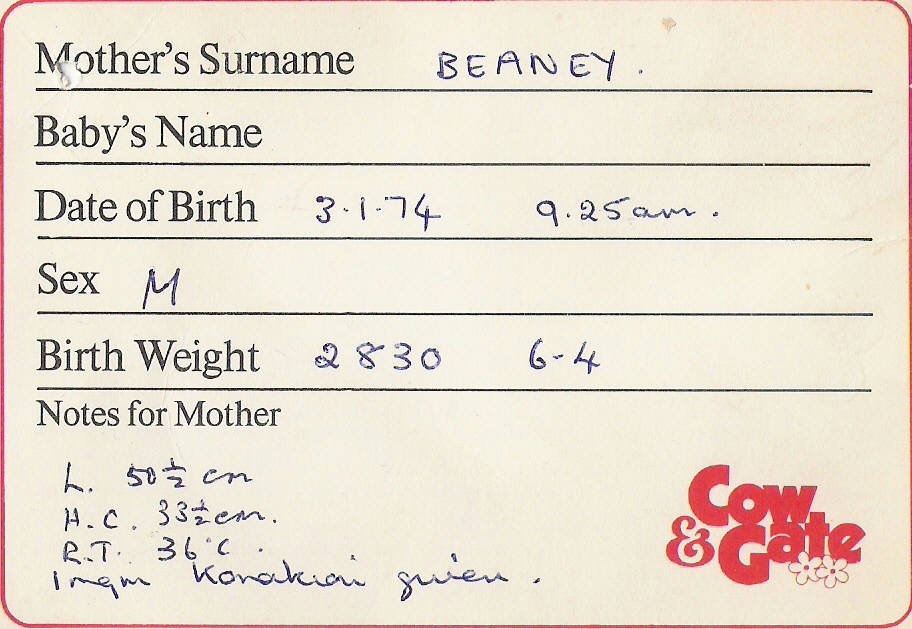 Mother's Surname BEANEY.
Baby's Name
Date of Birth 3.1.74 9.25am.
Sex M
Birth Weight 2830 6-4
Notes for Mother
L. 50½ cm
H.C. 33½cm.
R.T. 36°C.
1mgm Konakion given.
Cow
& Gate